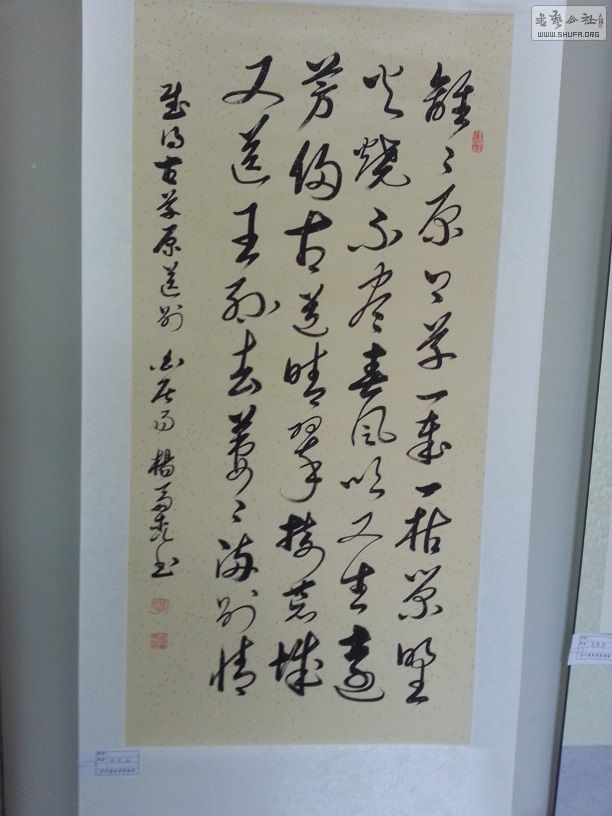 離〻原上草一歲一枯榮野
火燒不盡春風吹又生遠
芳侵古道晴翠接荒城
又送王孫去萋〻滿別情
賦得古草原送別 白居易 楊
書藝公社
WWW.SHUFA.ORG